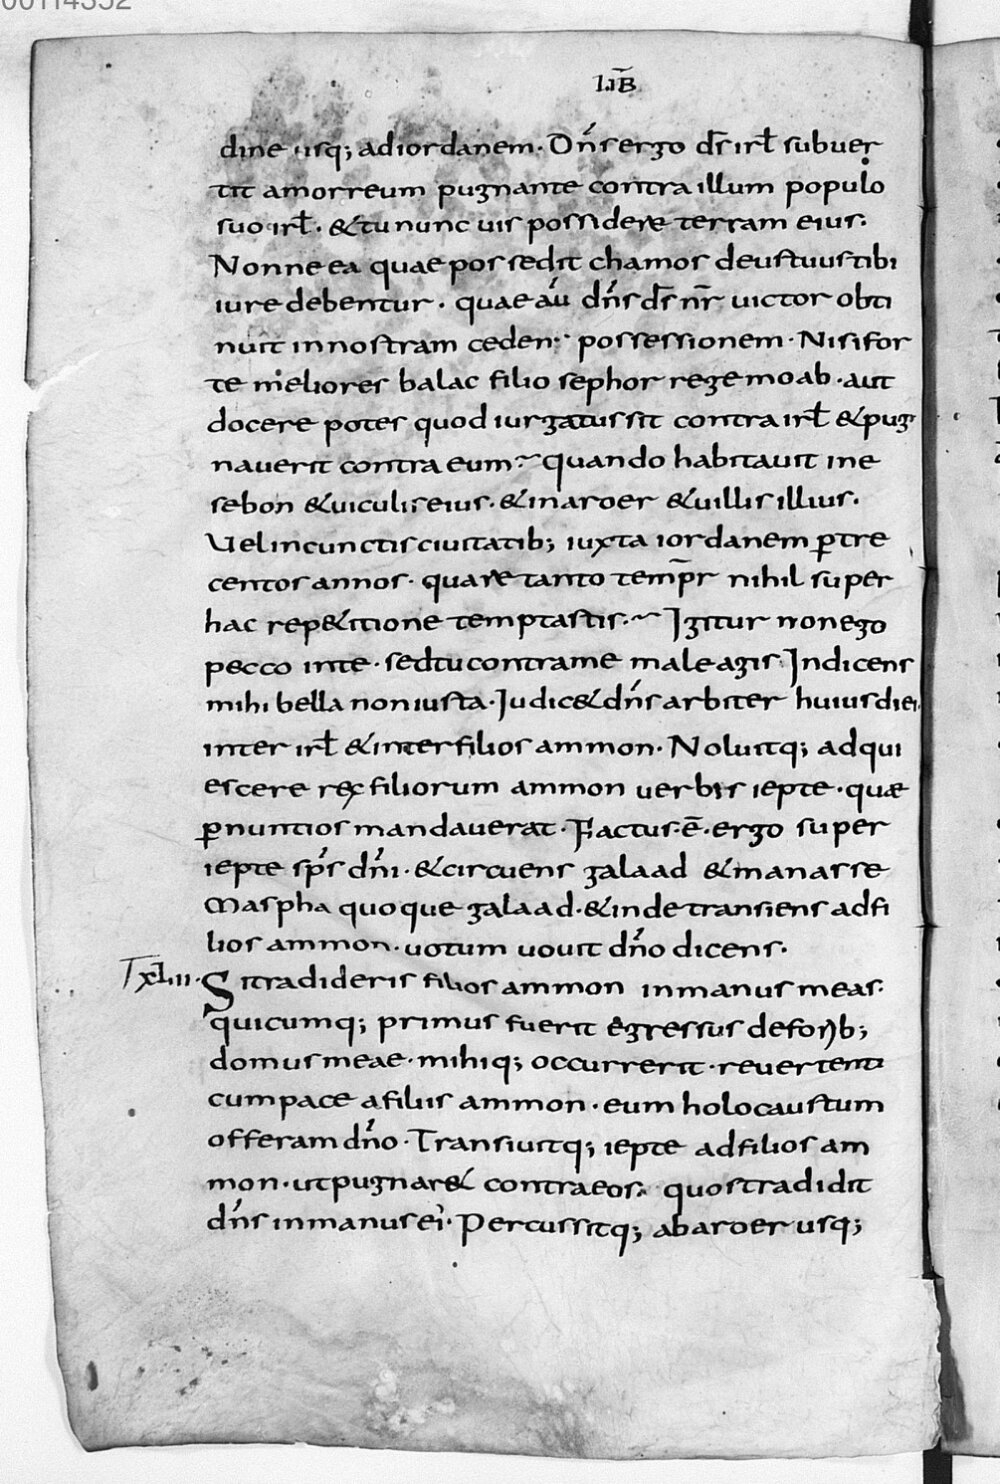 00114352
LIB̄
dine usq; adiordanem. Dn̄s ergo ds̄ irl̄ subuer
tit amorreum pugnante contra illum populo
suo irl̄. & tu nunc uis possidere terram eius.
Nonne ea quae possedit chamos deus tuus tibi
iure debentur. quae aū dn̄s ds̄ nr̄ uictor obti
nuit in nostram cedent possessionem. Nisi for
te meliores balac filio sephor rege moab. aut
docere potes quod iurgatus sit contra irl̄ & pug
nauerit contra eum. quando habitauit in e
sebon & uiculis eius. & in aroer & uillis illius.
Uel in cunctis ciuitatib; iuxta iordanem ꝑ tre
centos annos. quare tanto temp̄r nihil super
hac rep&itione temptastis. Igitur non ego
pecco in te. sed tu contra me male agis. Indicens
mihi bella non iusta. Iudic& dn̄s arbiter huius diei
inter irl̄ & inter filios ammon. Noluitq; adqui
escere rex filiorum ammon uerbis iepte. quæ
ꝑ nuntios mandauerat. Factus. ē. ergo super
iepte sp̄s dn̄i. & circuens galaad & manasse
Maspha quoque galaad. & inde transiens ad fi
lios ammon. uotum uouit dn̄o dicens.
XLIII. Si tradideris filios ammon in manus meas.
quicumq; primus fuerit egressus de forib;
domus meae. mihiq; occurrerit. reuertenti
cum pace a filiis ammon. eum holocaustum
offeram dn̄o. Transiuitq; iepte ad filios am
mon. ut pugnar& contra eos. quos tradidit
dn̄s in manus ei. Percussitq; ab aroer usq;